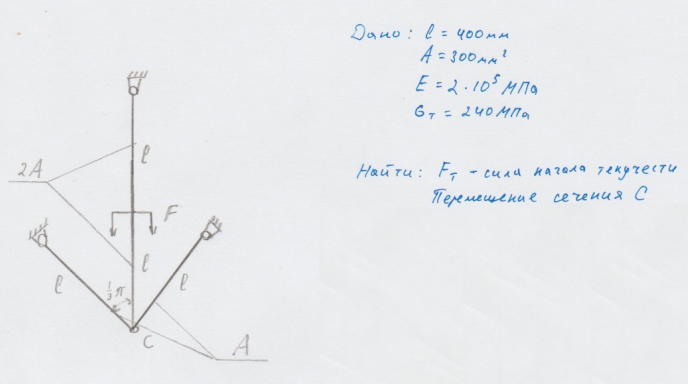 Дано: l = 400мм
A = 300мм²
E = 2·10⁵ МПа
σт = 240МПа
Найти: Fт - сила начала текучести
Перемещение сечения C
2A
l
F
l
l
l
1/3 π
C
A